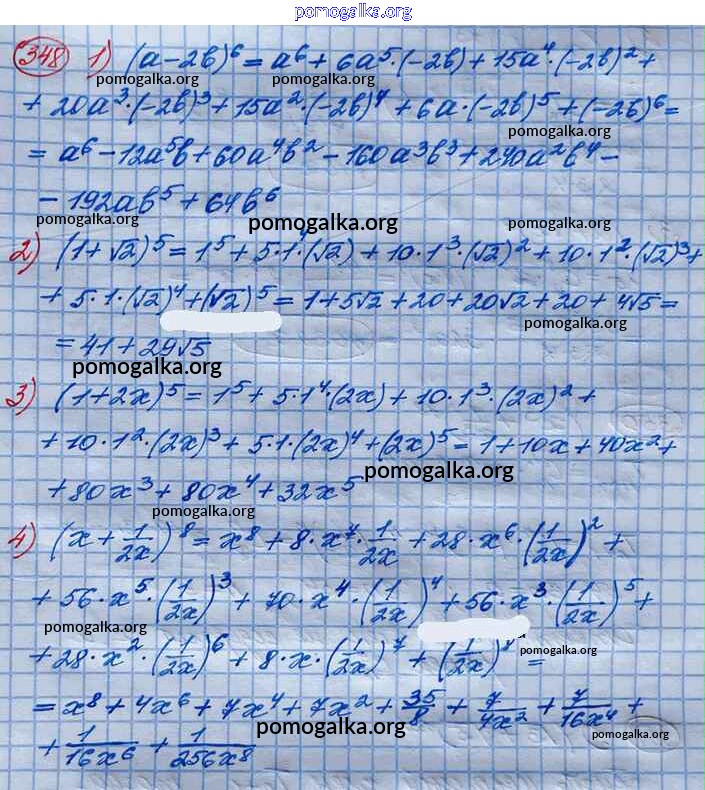 pomogalka.org
348 1) (a-2b)⁶ = a⁶ + 6a⁵·(-2b) + 15a⁴·(-2b)² +
+ 20a³·(-2b)³ + 15a²·(-2b)⁴ + 6a·(-2b)⁵ + (-2b)⁶ =
pomogalka.org pomogalka.org
pomogalka.org
= a⁶ - 12a⁵b + 60a⁴b² - 160a³b³ + 240a²b⁴ -
- 192ab⁵ + 64b⁶
pomogalka.org pomogalka.org pomogalka.org
2) (1+√2)⁵ = 1⁵ + 5·1⁴(√2) + 10·1³·(√2)² + 10·1²·(√2)³ +
+ 5·1·(√2)⁴ + (√2)⁵ = 1 + 5√2 + 20 + 20√2 + 20 + 4√5 =
pomogalka.org
= 41 + 29√5
pomogalka.org
3) (1+2x)⁵ = 1⁵ + 5·1⁴·(2x) + 10·1³·(2x)² +
+ 10·1²·(2x)³ + 5·1·(2x)⁴ + (2x)⁵ = 1 + 10x + 40x² +
pomogalka.org
+ 80x³ + 80x⁴ + 32x⁵
4) (x + 1/2x)⁸ = x⁸ + 8·x⁷·1/2x + 28·x⁶·(1/2x)² +
+ 56·x⁵·(1/2x)³ + 70·x⁴·(1/2x)⁴ + 56·x³·(1/2x)⁵ +
pomogalka.org
+ 28·x²·(1/2x)⁶ + 8·x·(1/2x)⁷ + (1/2x)⁸ =
pomogalka.org
= x⁸ + 4x⁶ + 7x⁴ + 7x² + 35/8 + 7/4x² + 7/16x⁴ +
pomogalka.org pomogalka.org
+ 1/16x⁶ + 1/256x⁸